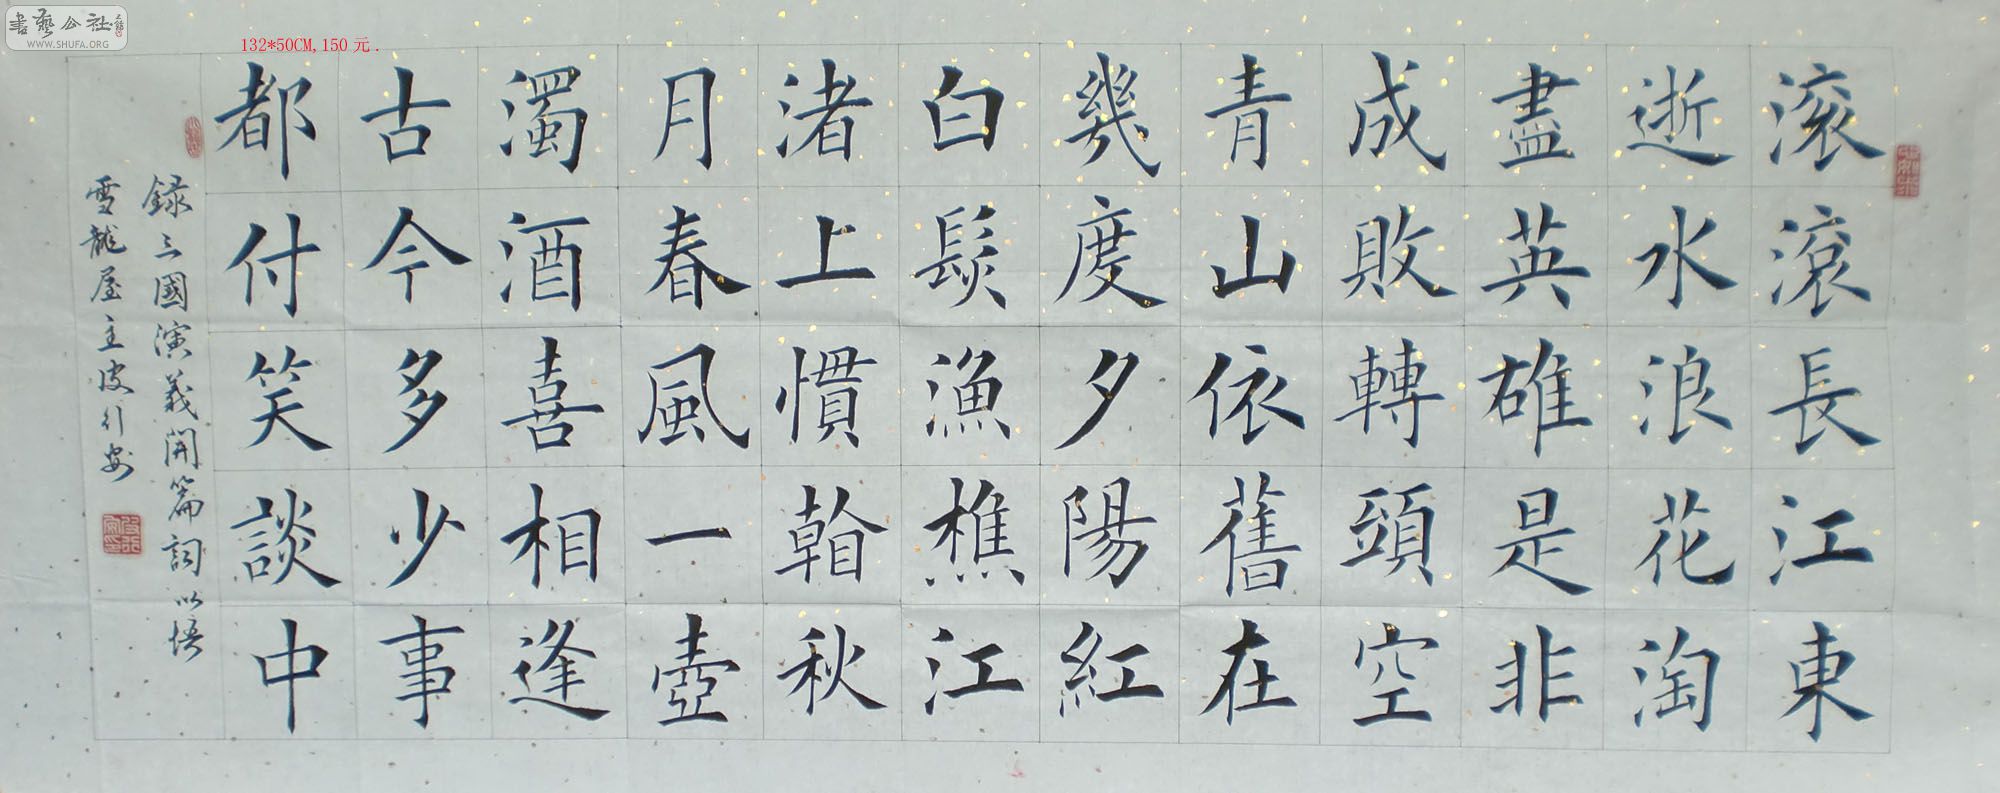 書藝公社
WWW.SHUFA.ORG
132*50CM,150元.
滚滾長江東
逝水浪花淘
盡英雄是非
成敗轉頭空
青山依舊在
幾度夕陽紅
白髮漁樵江
渚上慣看秋
月春風一壺
濁酒喜相逢
古今多少事
都付笑談中
録三國演義開篇詞以悟
雪龍屋主皮行安